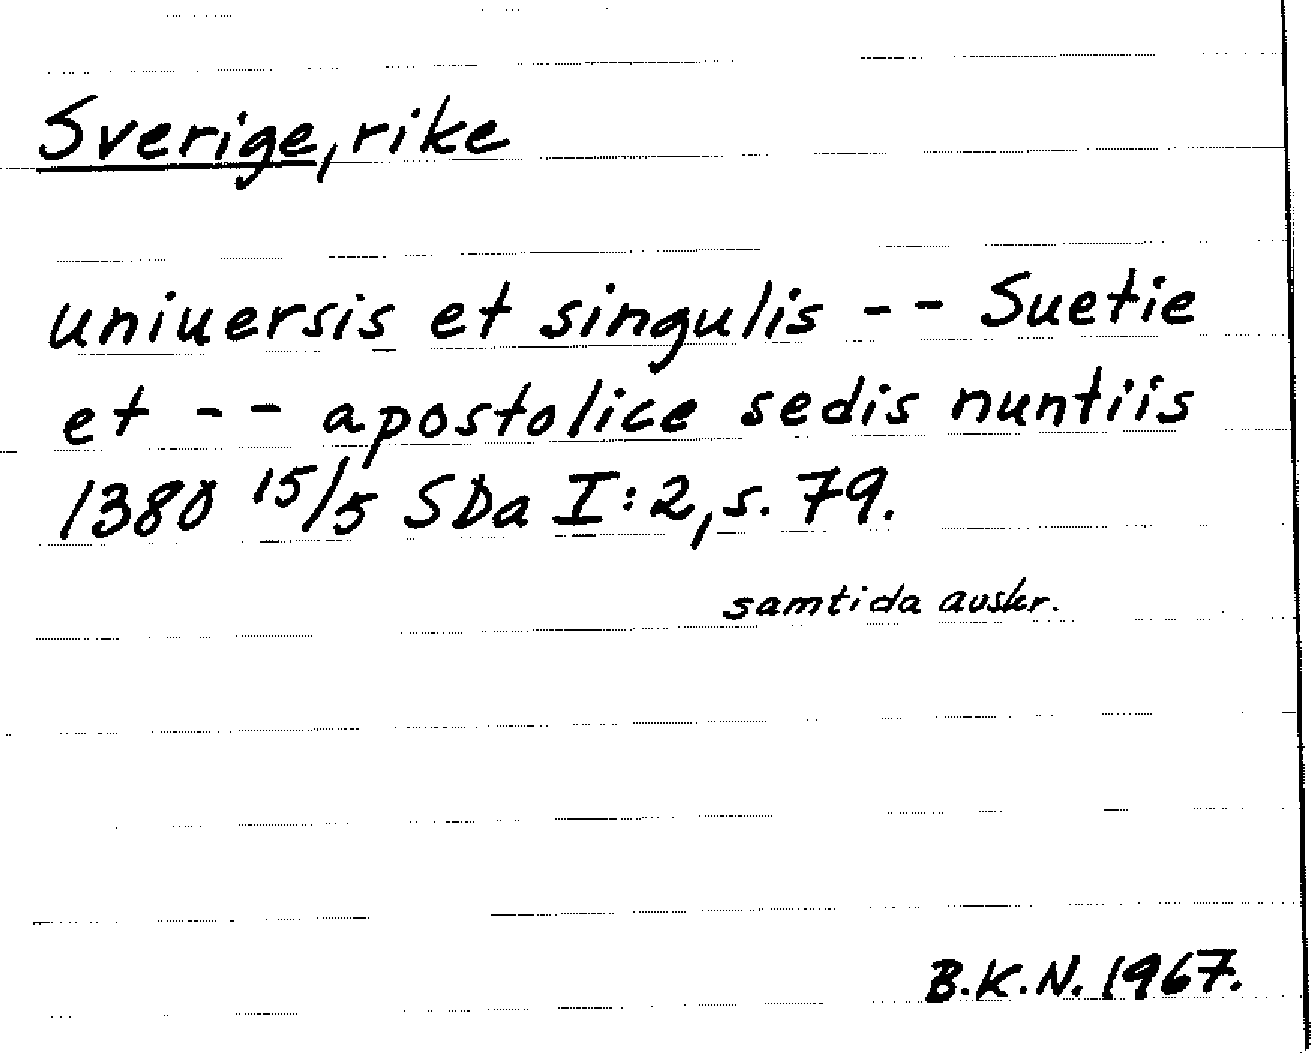 Sverige, rike
uniuersis et singulis -- Suetie
et -- apostolice sedis nuntiis
1380 15/5 SDa I:2, s. 79.
samtida avskr.
B.K.N. 1967.